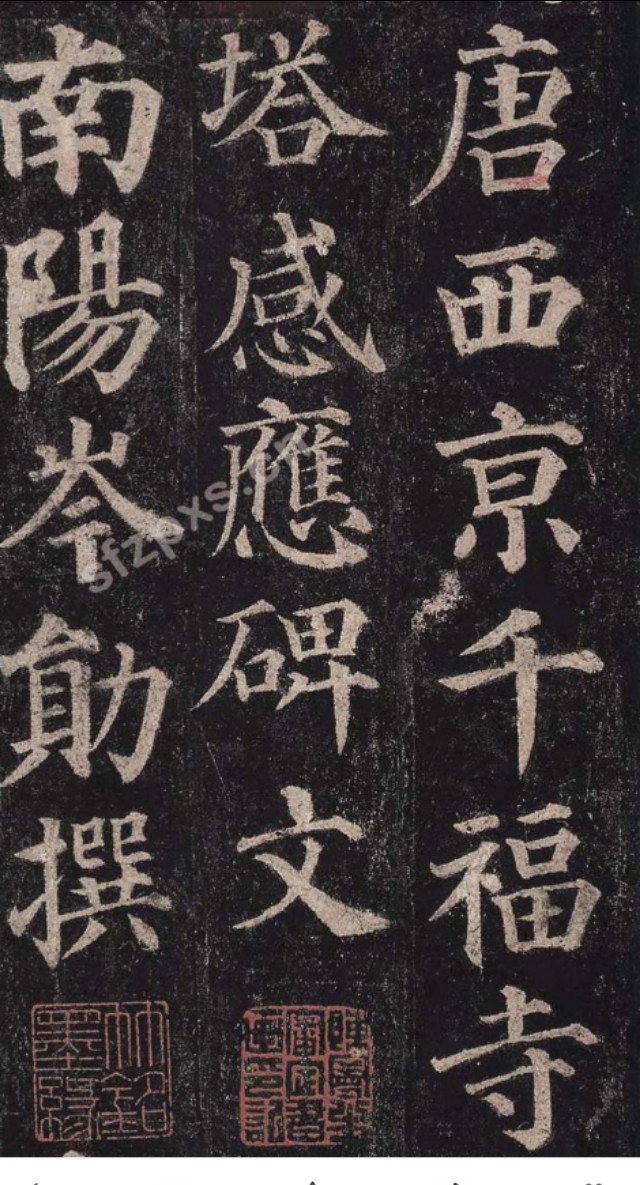 唐西京千福寺
塔感應碑文
南陽岑勛撰
sfzpxs.cn